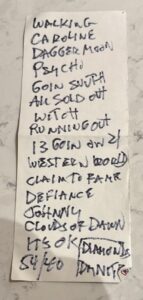 WALKING
CAROLINE
DAGGER MOON
PSYCHO
GOIN SOUTH
ALL SOLD OUT
WITCH
RUNNING OUT
13 GOIN ON 21
WESTERN WORLD
CLAIM TO FAME
DEFIANCE
JOHNNY
CLOUDS OF DAWN
ITS OK
DIAMONDS
54/40